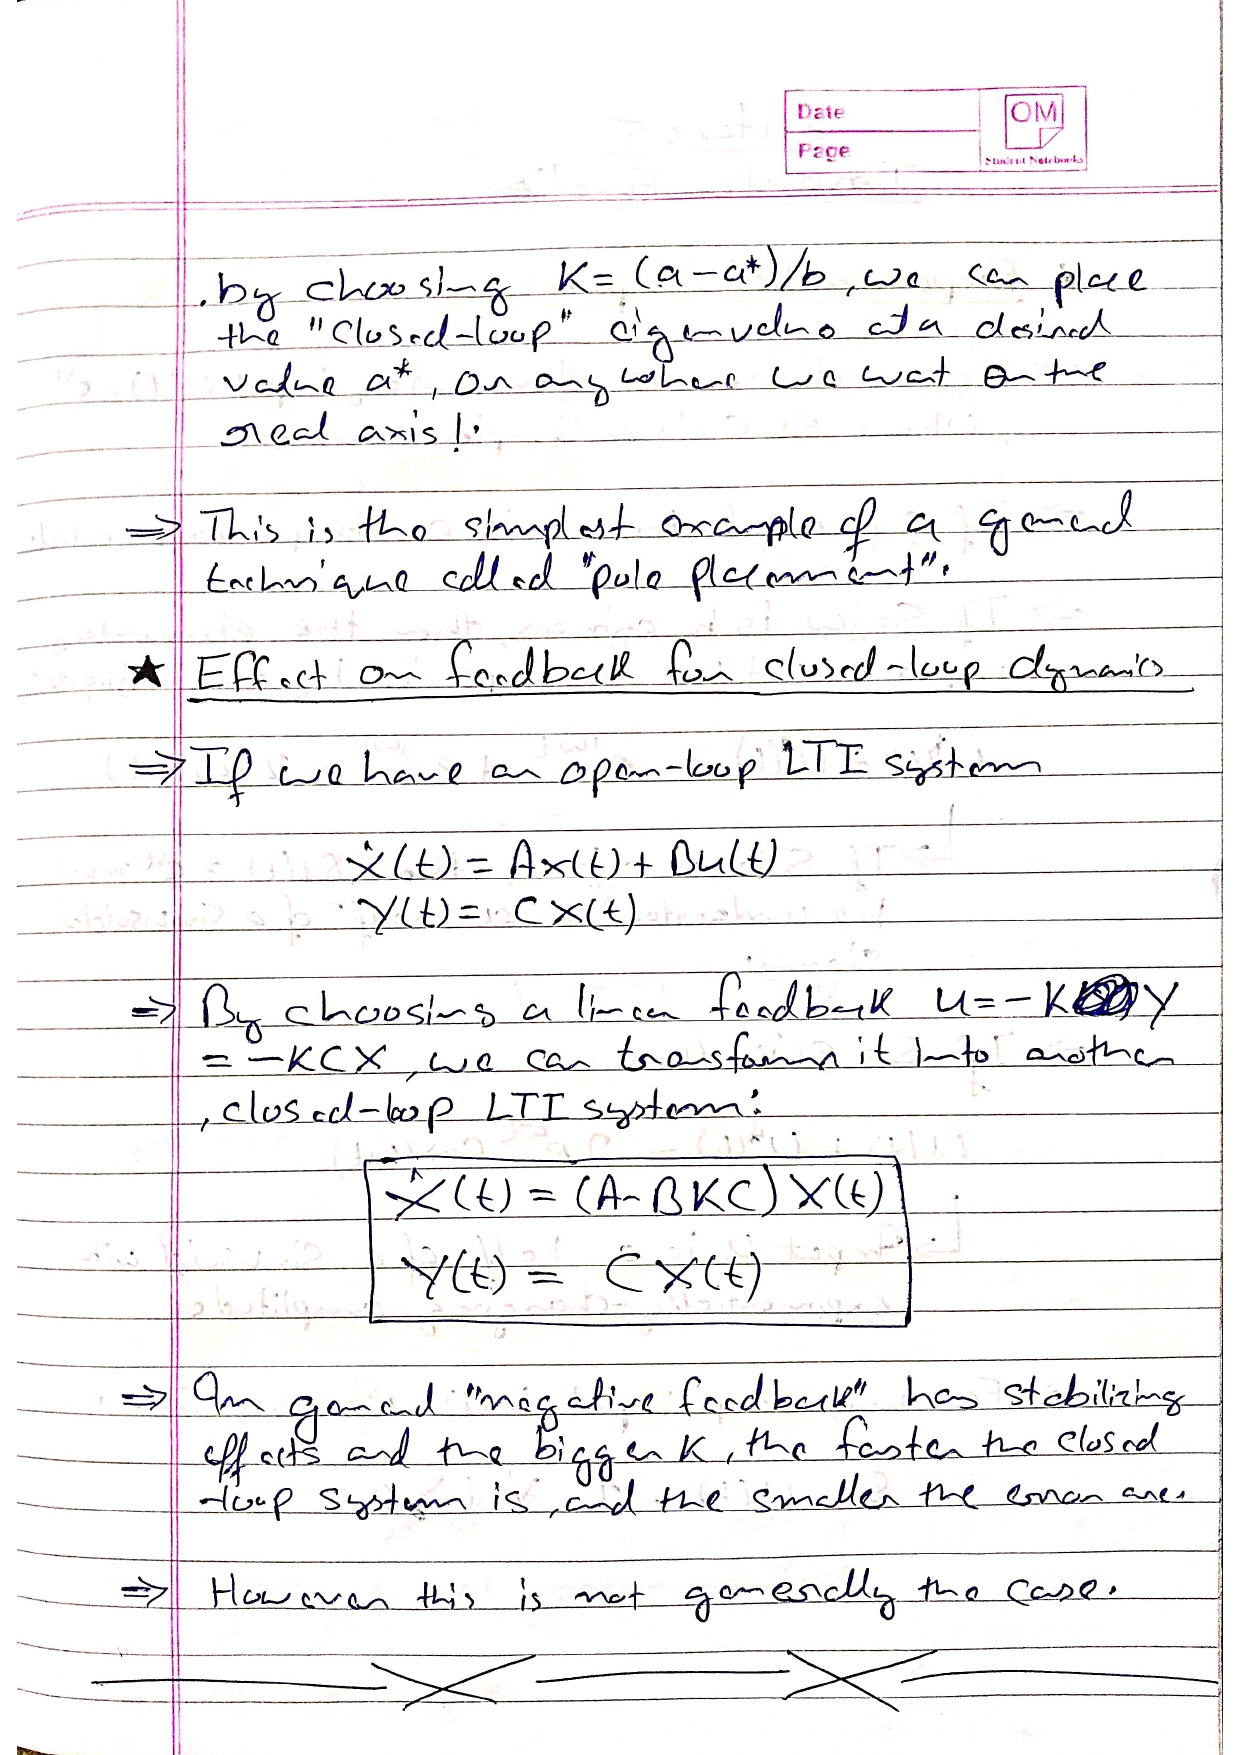 Date
OM
Page
Student Notebooks
. by choosing K = (a - a*)/b, we can place
the "Closed-loop" eigenvalue at a desired
value a*, or anywhere we wat on the
real axis!.
⇒ This is the simplest example of a general
technique called "pole placement".
★ Effect on feedback for closed-loop dynamics
⇒ If we have an open-loop LTI system
ẋ(t) = Ax(t) + Bu(t)
Y(t) = CX(t)
⇒ By choosing a linear feedback u = -KY
= -KCX, we can transform it into another
, closed-loop LTI system:
Ẋ(t) = (A - BKC) X(t)
Y(t) = CX(t)
⇒ In general "negative feedback" has stabilizing
effects and the bigger K, the faster the closed
-loop system is, and the smaller the error are.
⇒ However this is not generally the case.